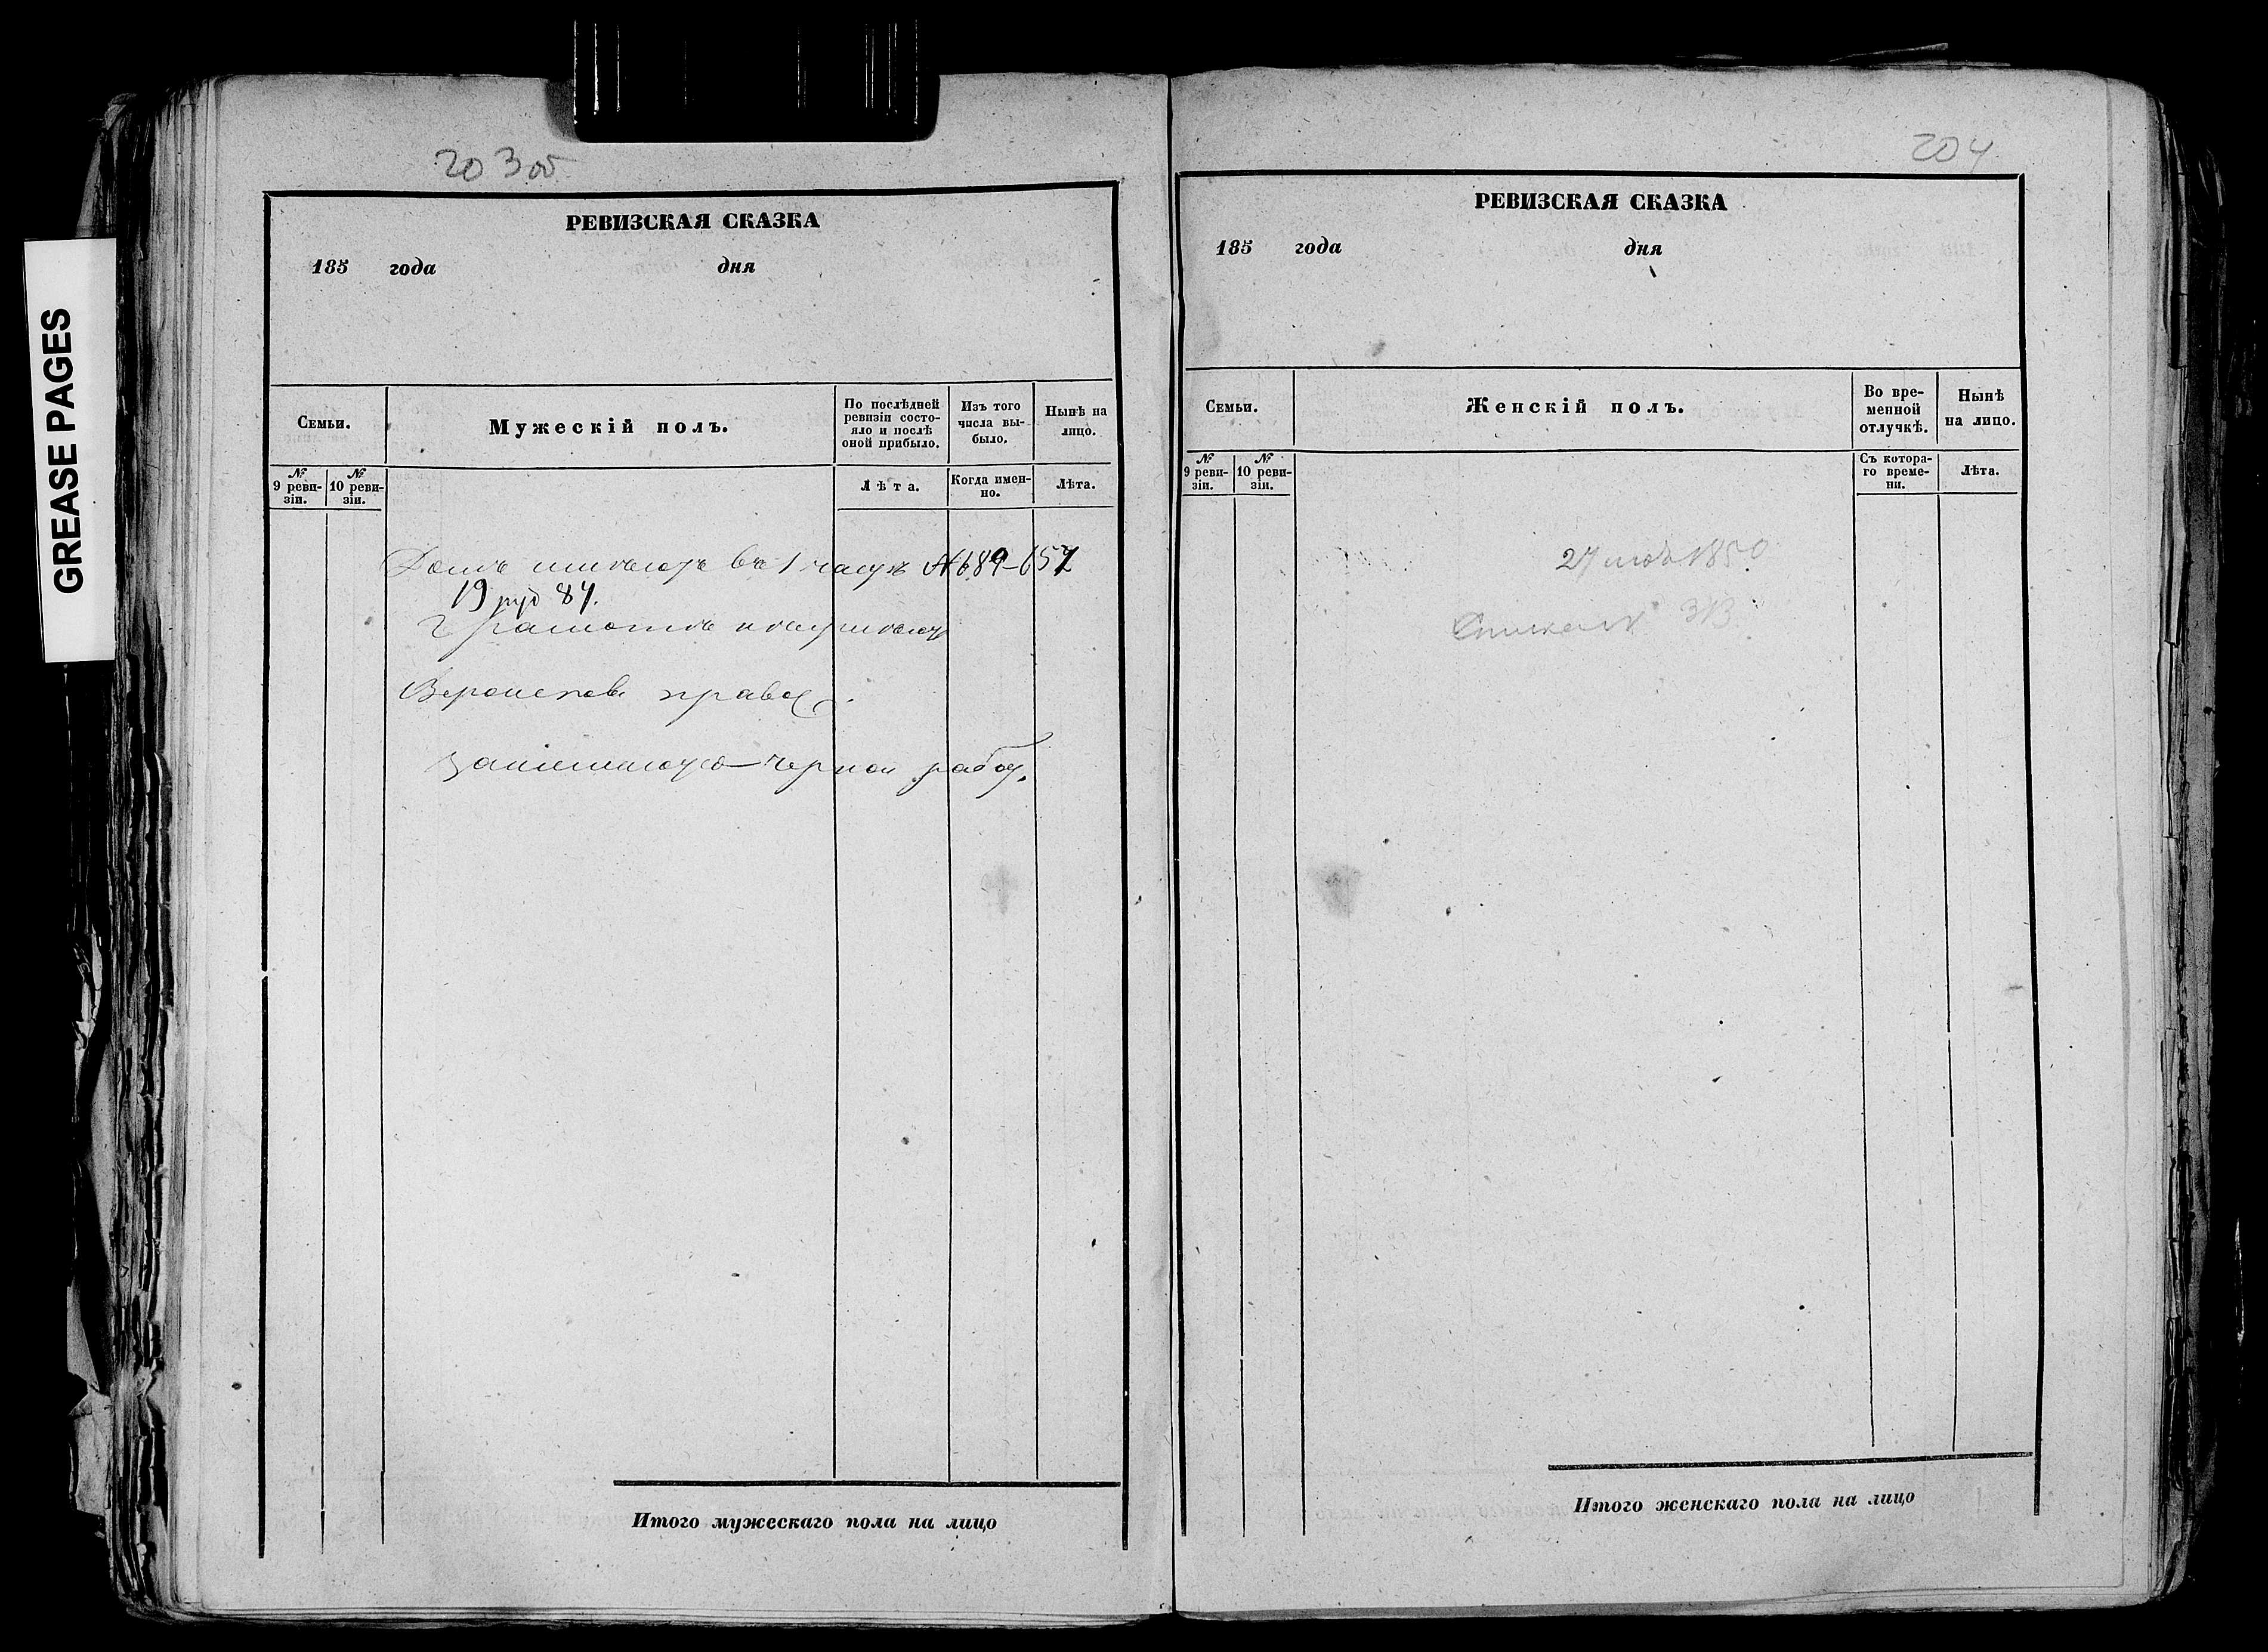 GREASE PAGES
203 об
РЕВИЗСКАЯ СКАЗКА
185 года дня
Семьи.
Мужескій полъ.
По послѣдней ревизіи состо-
яло и послѣ
оной прибыло.
Изъ того
числа вы-
было.
Нынѣ на
лицо.
№ 9 реви-
зіи.
№ 10 реви-
зіи.
Лѣта.
Когда имен-
но.
Лѣта.
Домъ имѣютъ въ 1 части № 689-657
19 руб 84.
Грамотѣ не умѣют
правос.
занимаются черной работ.
Итого мужескаго пола на лицо
204
РЕВИЗСКАЯ СКАЗКА
185 года дня
Семьи.
Женскій полъ.
Во вре-
менной
отлучкѣ.
Нынѣ
на лицо.
№ 9 реви-
зіи.
№ 10 реви-
зіи.
Съ котора-
го време-
ни.
Лѣта.
27 1850
313
Итого женскаго пола на лицо